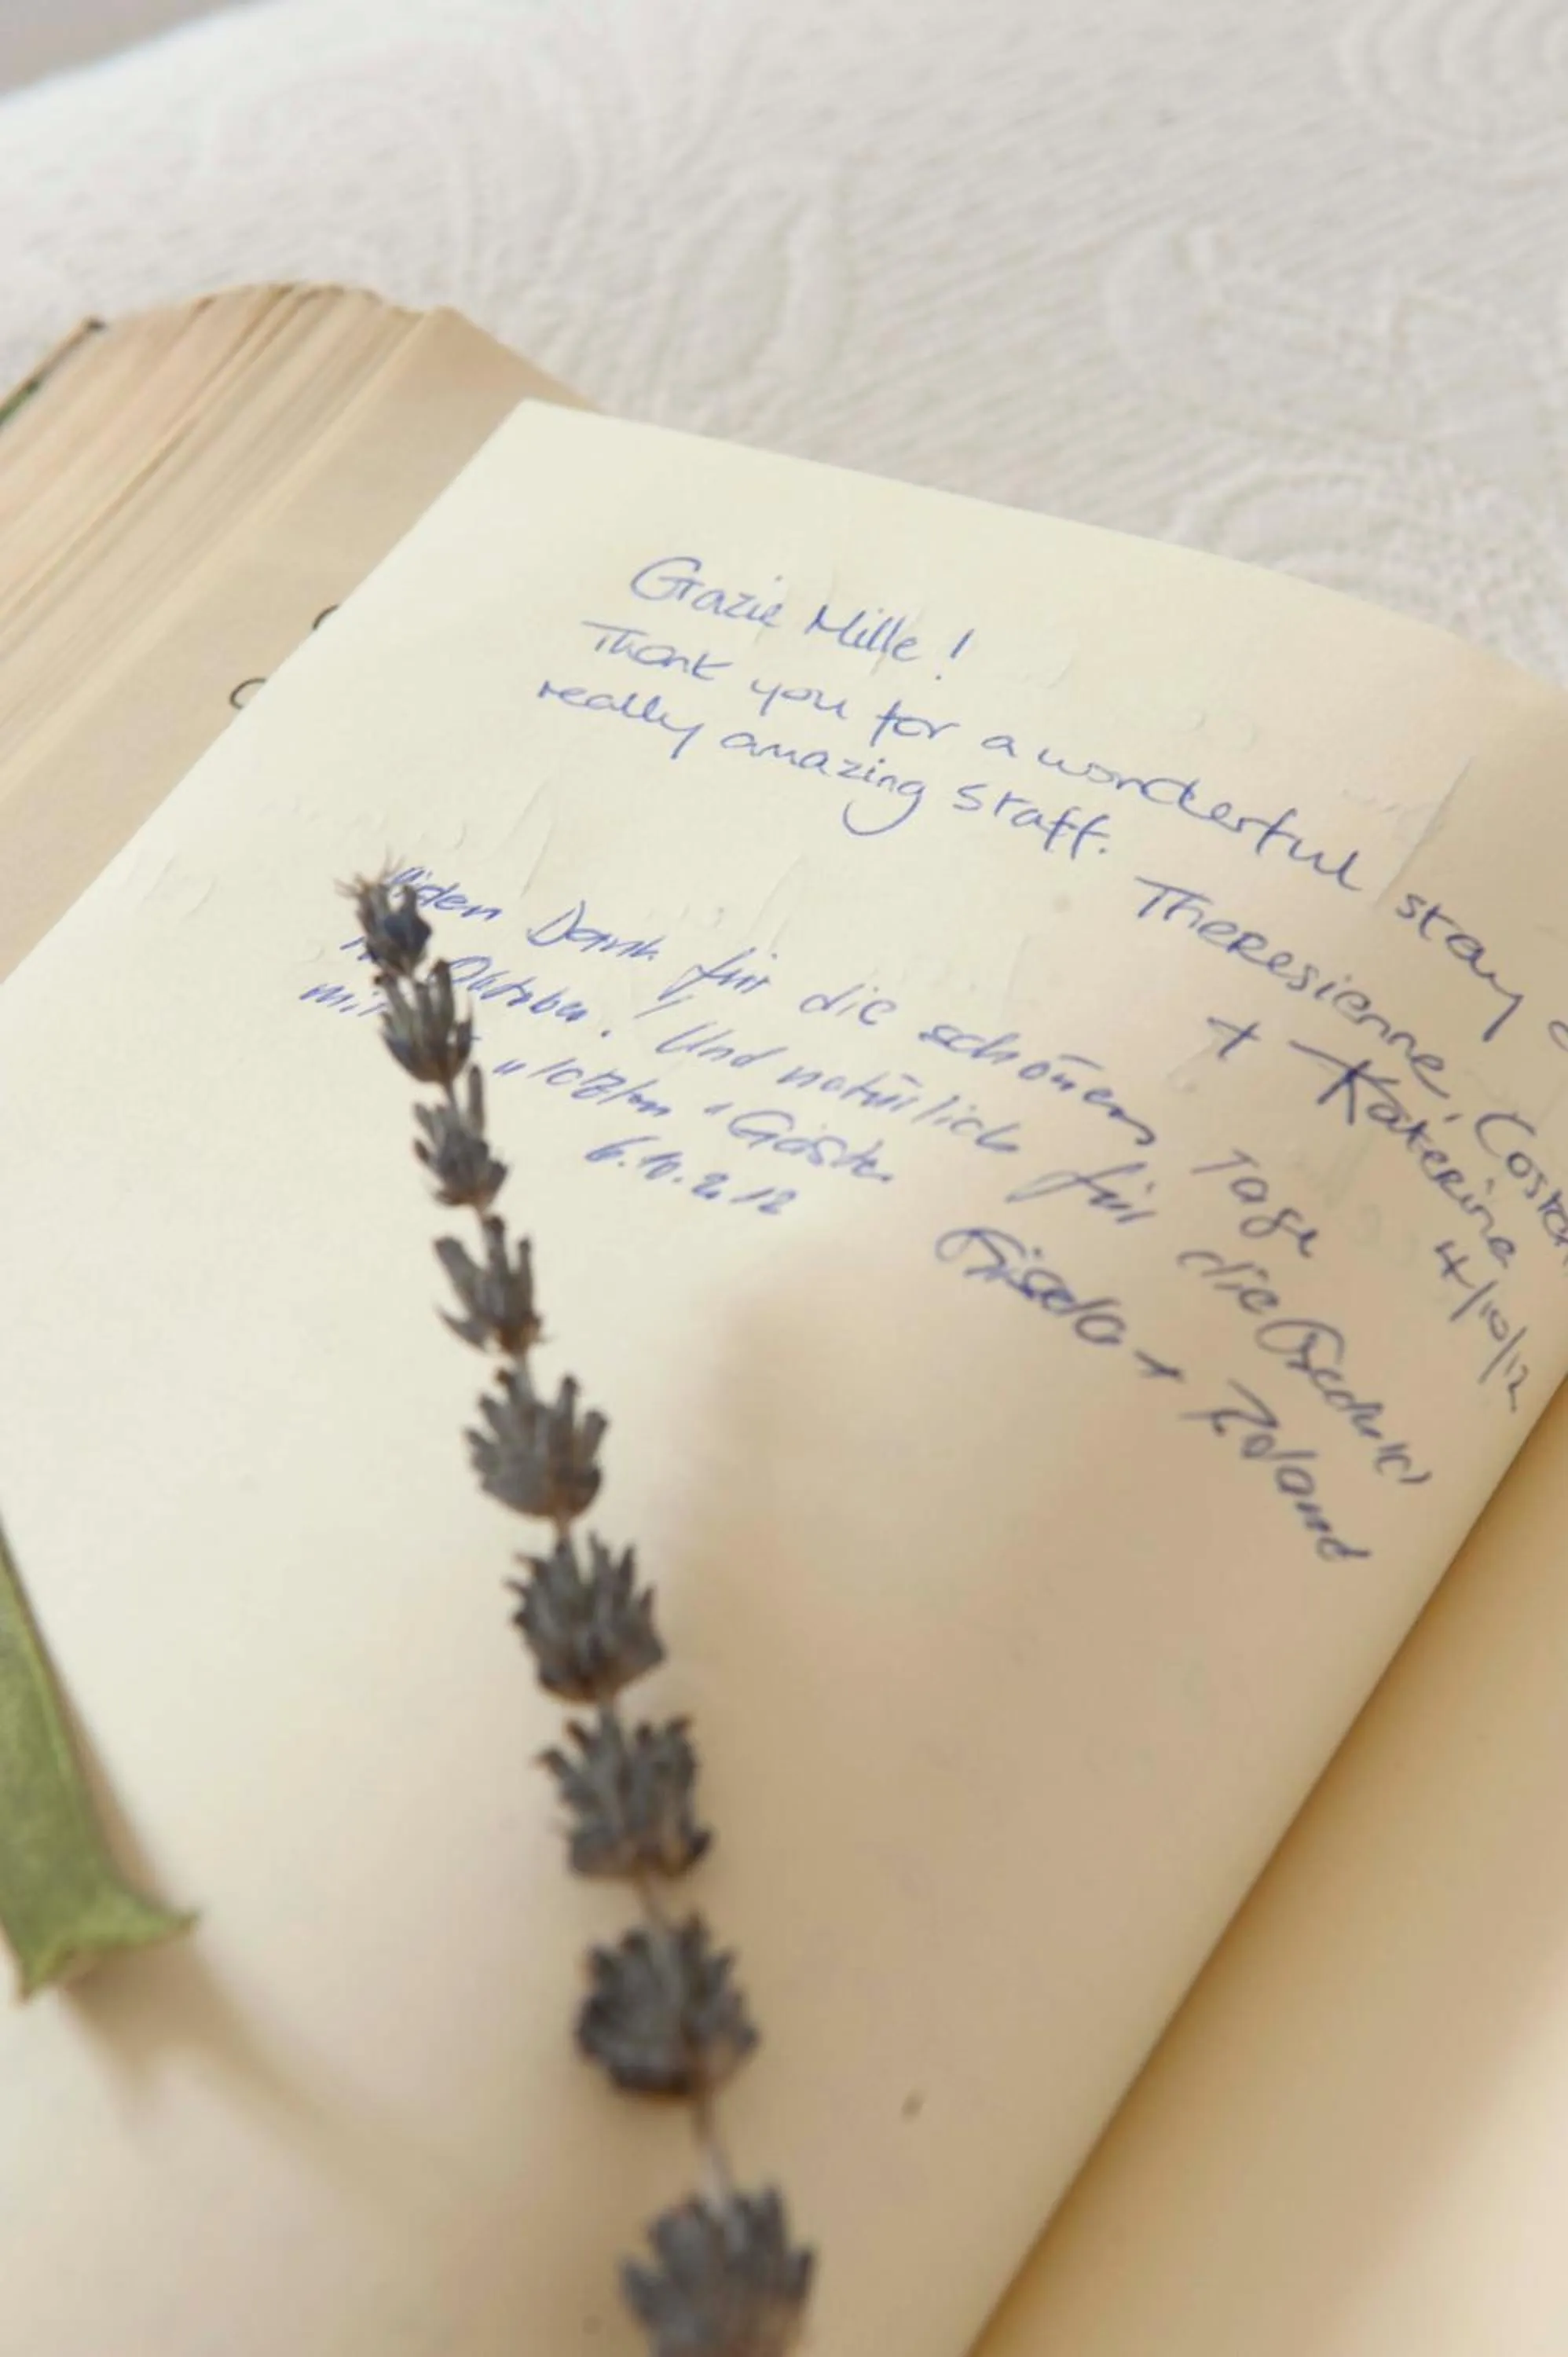 Grazie Mille!
Thank you for a wonderful stay
really amazing staff.
Theresienne,
+ Katerine
4/10/12
Dank für die schönen Tage
Oktober! Und natürlich für die
mit "letzten" Gästen
6.10.2012
Gisela + Roland